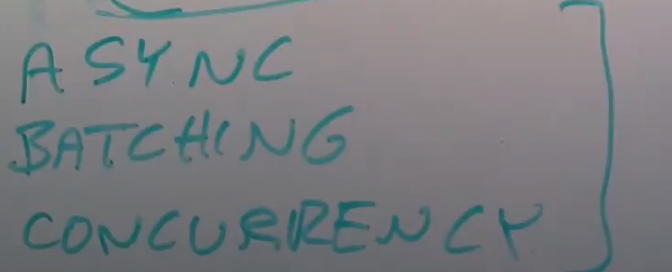 ASYNC
BATCHING
CONCURRENCY